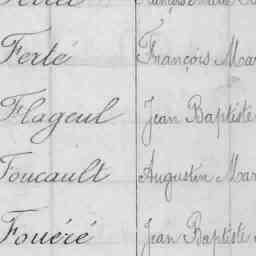 Ferté François Mar
Flageul Jean Baptiste
Foucault Augustin Mar
Fouéré Jean Baptiste